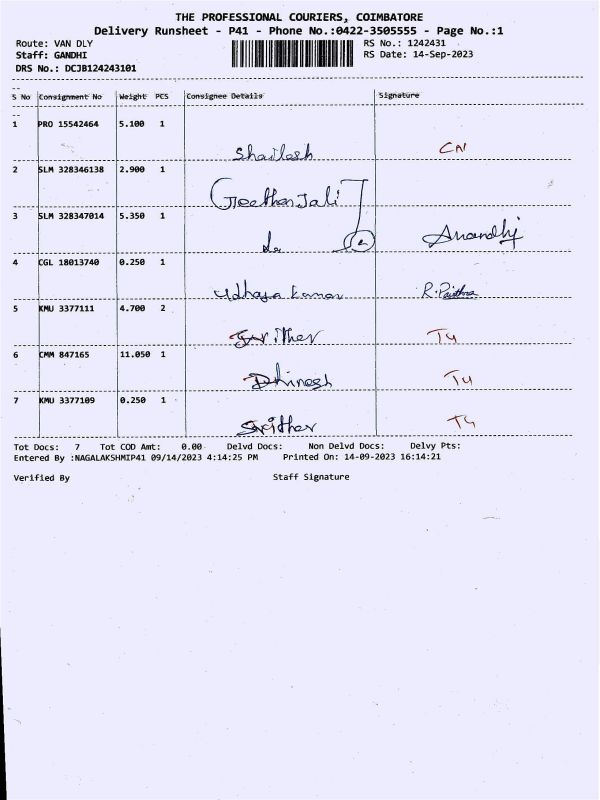 THE PROFESSIONAL COURIERS, COIMBATORE
Delivery Runsheet - P41 - Phone No.:0422-3505555 - Page No.:1
Route: VAN DLY RS No.: 1242431
Staff: GANDHI RS Date: 14-Sep-2023
DRS No.: DCJB124243101
S No Consignment No Weight PCS Consignee Details Signature
1 PRO 15542464 5.100 1
Shailesh CN
2 SLM 328346138 2.900 1
Geethanjali
3 SLM 328347014 5.350 1
do Anandhi
4 CGL 18013740 0.250 1
Udhaya kumar R. Pavithra
5 KMU 3377111 4.700 2
Srither T4
6 CMM 847165 11.050 1
Dhinesh T4
7 KMU 3377109 0.250 1
Srither T4
Tot Docs: 7 Tot COD Amt: 0.00 Delvd Docs: Non Delvd Docs: Delvy Pts:
Entered By :NAGALAKSHMIP41 09/14/2023 4:14:25 PM Printed On: 14-09-2023 16:14:21
Verified By Staff Signature